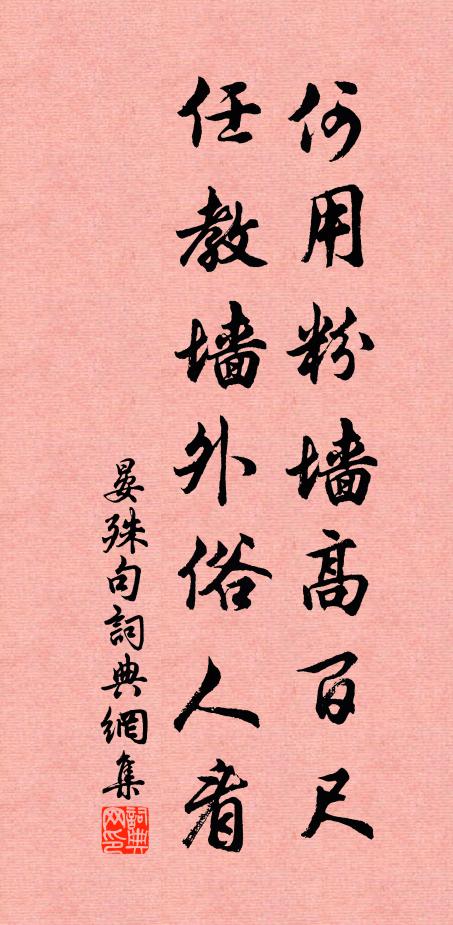 何用粉墙高百尺
任教墙外俗人看
晏殊句詞典網集
詞典网印